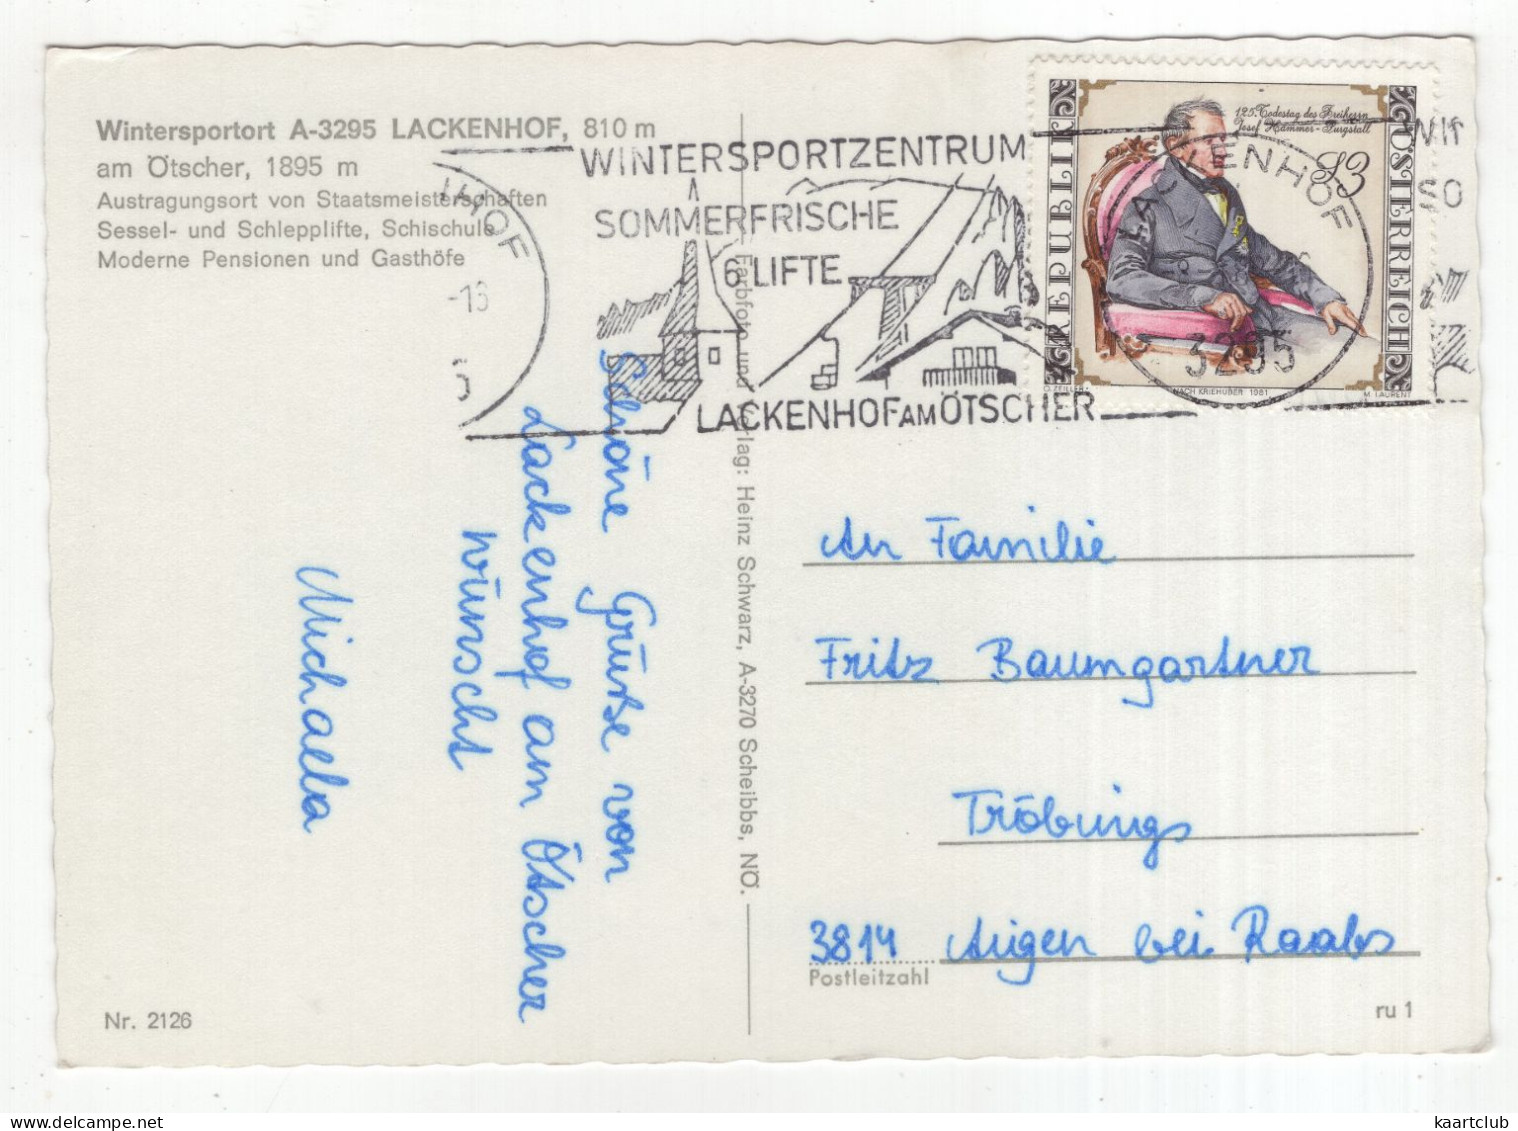 Wintersportort A-3295 LACKENHOF, 810 m
am Ötscher, 1895 m
Austragungsort von Staatsmeisterschaften
Sessel- und Schlepplifte, Schischule
Moderne Pensionen und Gasthöfe
WINTERSPORTZENTRUM
SOMMERFRISCHE
6 LIFTE
LACKENHOF AM ÖTSCHER
125. Todestag des Freiherrn
Josef Hammer-Purgstall
S3
REPUBLIK
ÖSTERREICH
O. ZEILLER
NACH KRIEHUBER 1981
M. LAURENT
LACKENHOF
3295
Schöne Grüße von
Lackenhof am Ötscher
wünscht
Michaela
Farbfoto und Verlag: Heinz Schwarz, A-3270 Scheibbs, NÖ.
An Familie
Fritz Baumgartner
Tröbings
3814 Aigen bei Raabs
Postleitzahl
Nr. 2126
ru 1
kaartclub